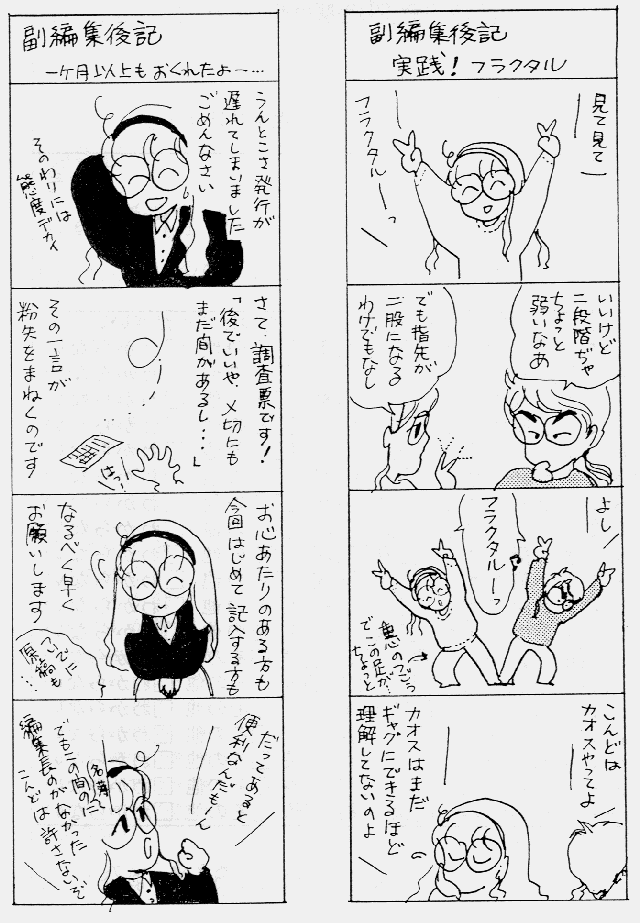 副編集後記
実践！フラクタル
見て見てー
フラクタルーっ
いいけど
二段階ぢゃ
ちょっと
弱いなあ
でも指先が
二股になる
わけでもなし
よし
フラクタルーっ♪
重心のつごう
でこの足が…
ちょっと
こんどは
カオスやってよ
カオスはまだ
ギャグにできるほど
理解してないのよ
副編集後記
一ケ月以上もおくれたよ〜…
うんとこさ発行が
遅れてしまいました
ごめんなさい
そのわりには
態度デカイ
さて、調査票です！
「後でいいや、〆切にも
まだ間があるし…」
はっ!
その一言が
粉失をまねくのです
お心あたりのある方も
今回はじめて記入する方も
なるべく早く
お願いします
ついでに
原稿も
…
だってあると
便利なんだもーん
でもこの間の名簿に
編集長のがなかった
こんどは許さないぞ